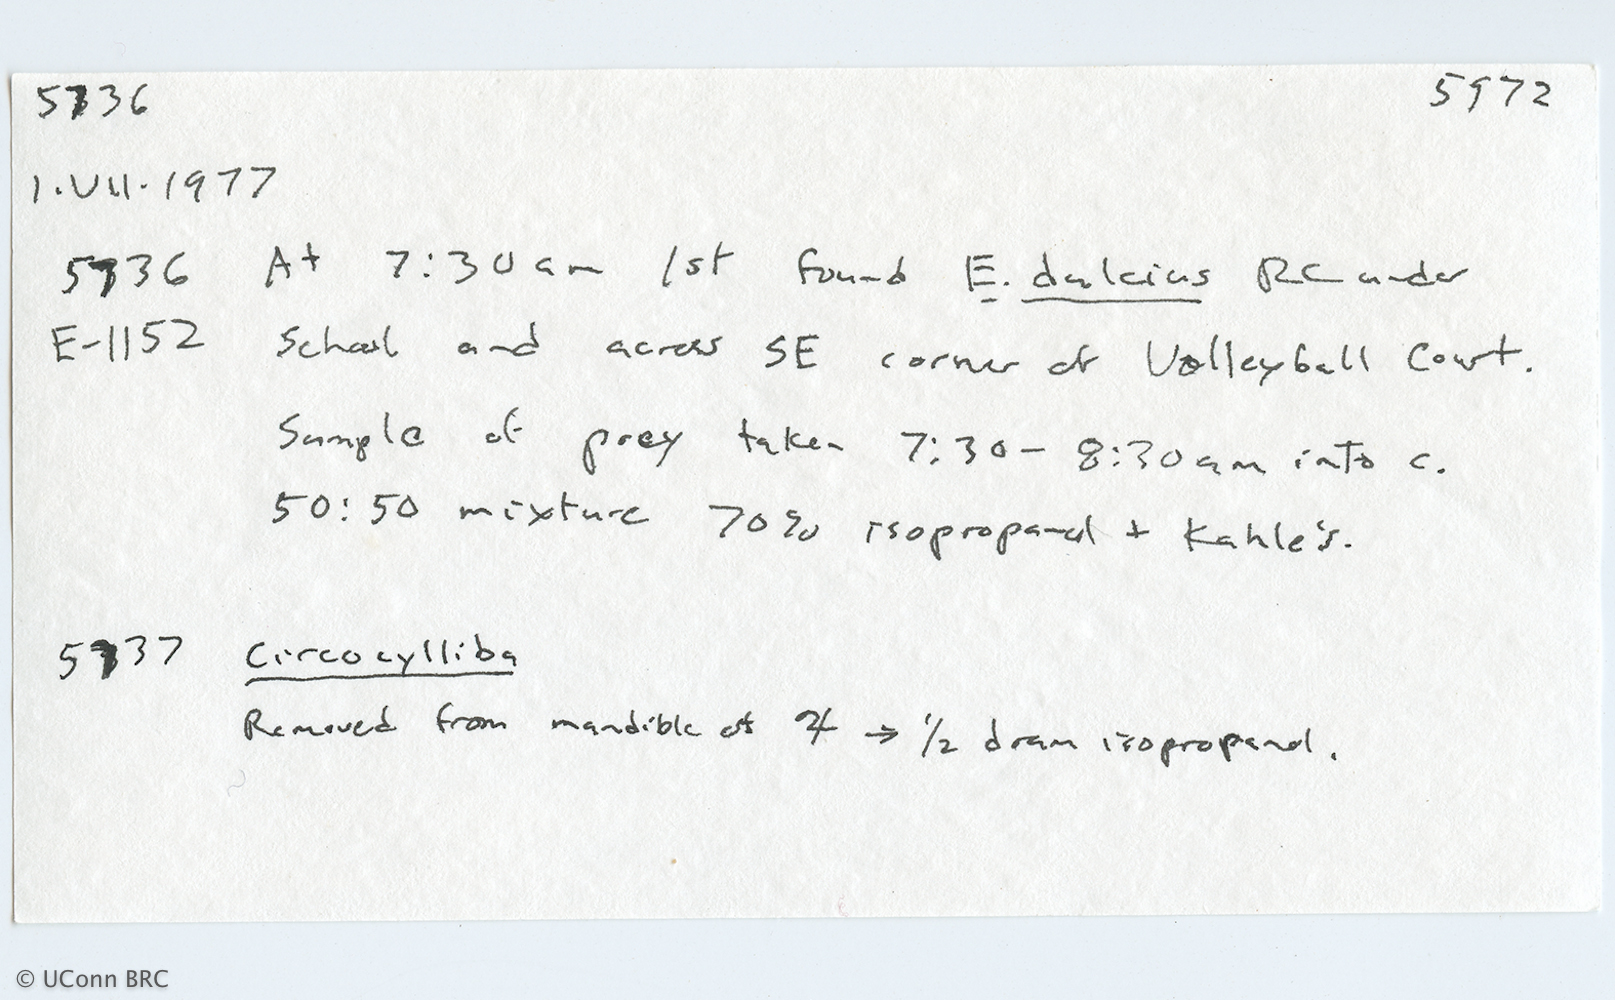 5736 5972
1.VII.1977
5736 At 7:30am 1st found E. dulcius RC under
E-1152 School and across SE corner of Volleyball Court.
Sample of prey taken 7:30 - 8:30am into c.
50:50 mixture 70% isopropanol + Kahle's.
5737 Circocylliba
Removed from mandible of ♃ → 1/2 dram isopropanol.
© UConn BRC